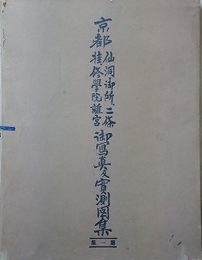 京都
仙洞御所二條
積修學院離宮
御寫真及實測図集
第一集